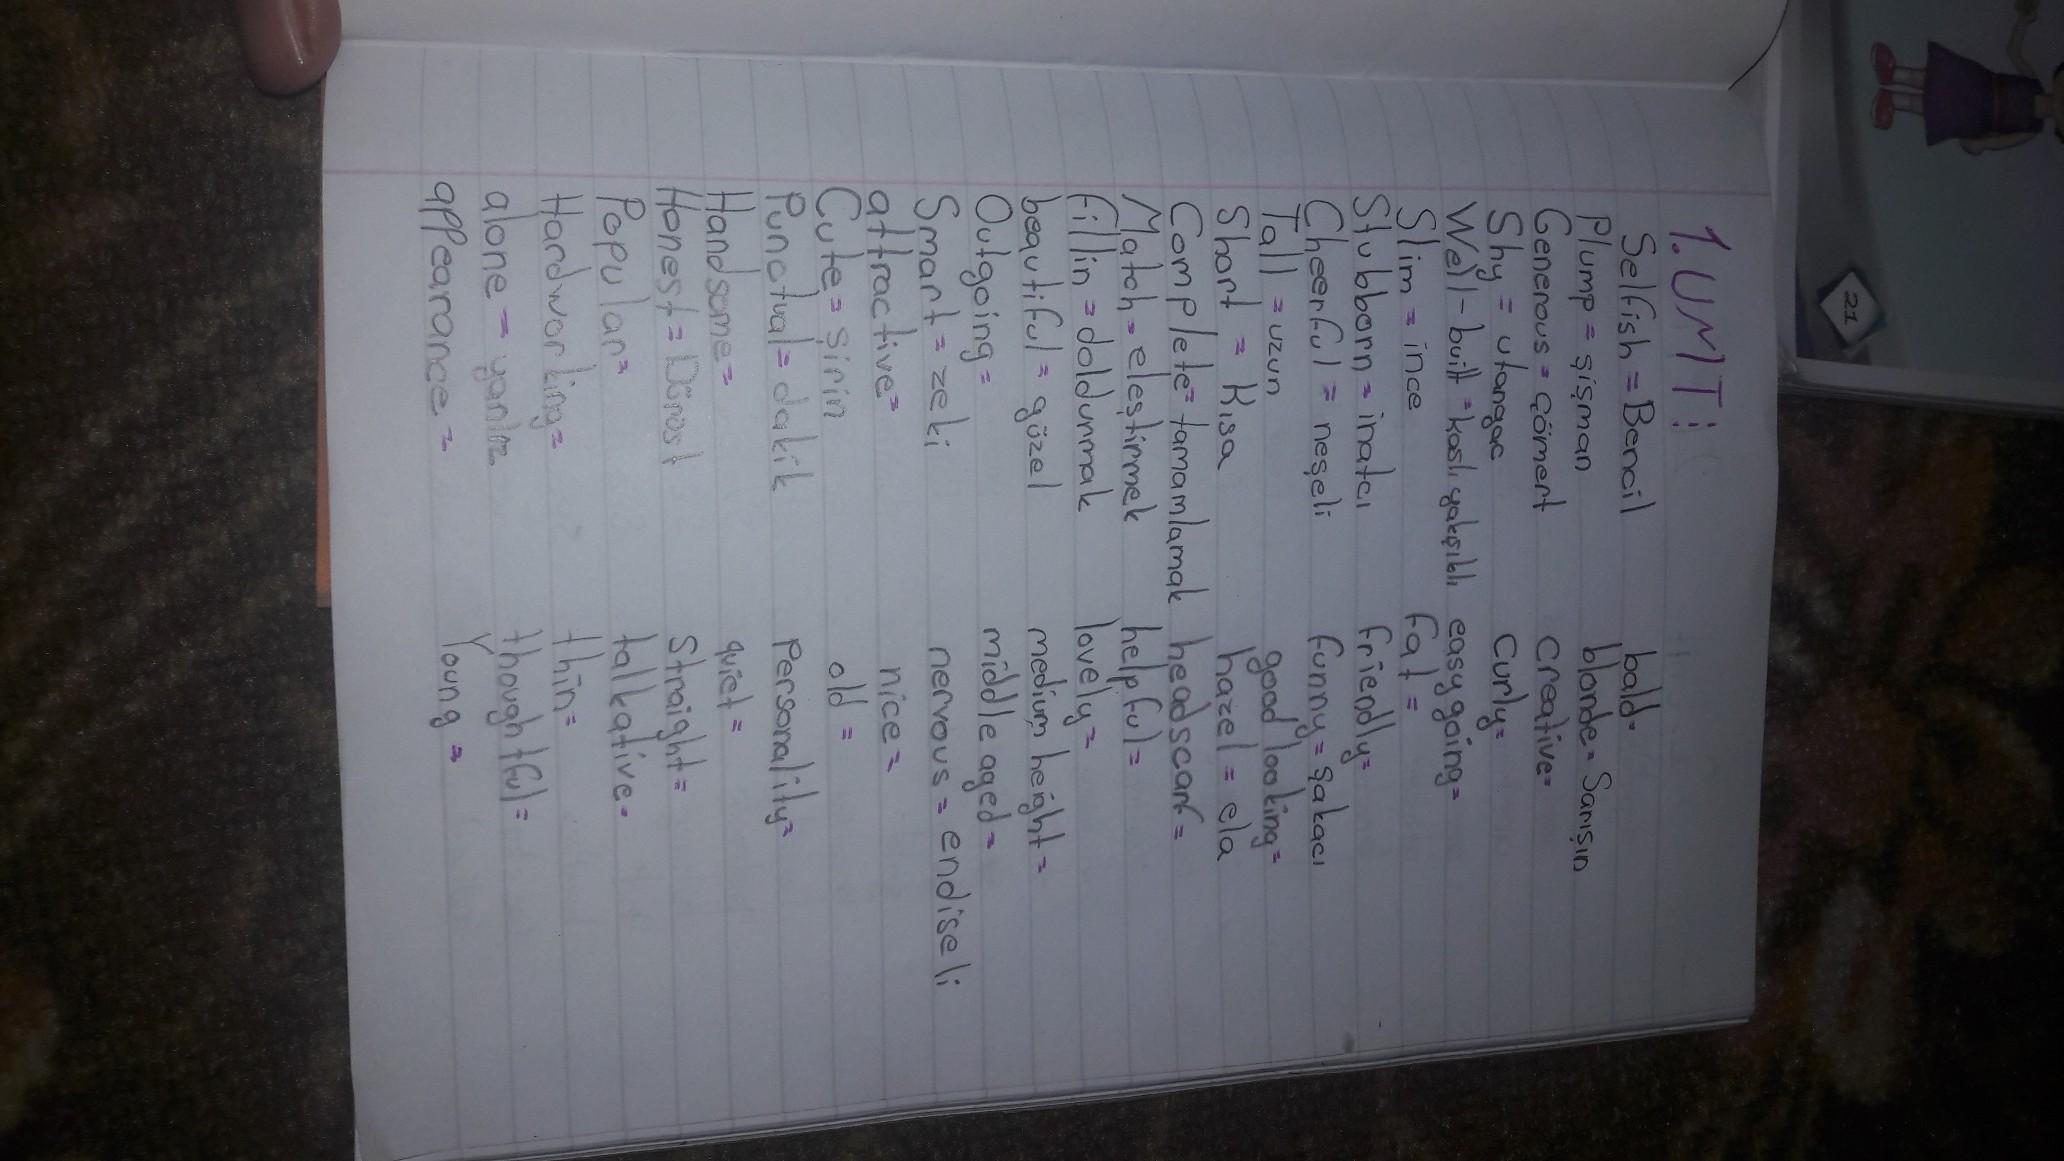 21
1. UNIT:
Selfish = Bencil
Plump = şişman
Generous = Cömert
Shy = utangaç
Well-built = kaslı yakışıklı
Slim = ince
Stubborn = inatcı
Cheerful = neşeli
Tall = uzun
Short = Kısa
Complete = tamamlamak
Match = eleştirmek
fillin = doldurmak
beautiful = güzel
Outgoing =
Smart = zeki
attractive =
Cute = şirin
Punctual = dakik
Handsome =
Honest = Dürüst
Popular =
Hardworking =
alone = yanlız
appearance =
bald =
blonde = Sarışın
Creative =
Curly =
easy going =
fat =
friendly =
funny = şakacı
good looking =
hazel = ela
headscarf =
helpful =
lovely =
medium height =
middle aged =
nervous = endiseli
nice =
old =
Personality =
quiet =
Straight =
talkative =
thin =
thoughtful =
Young =